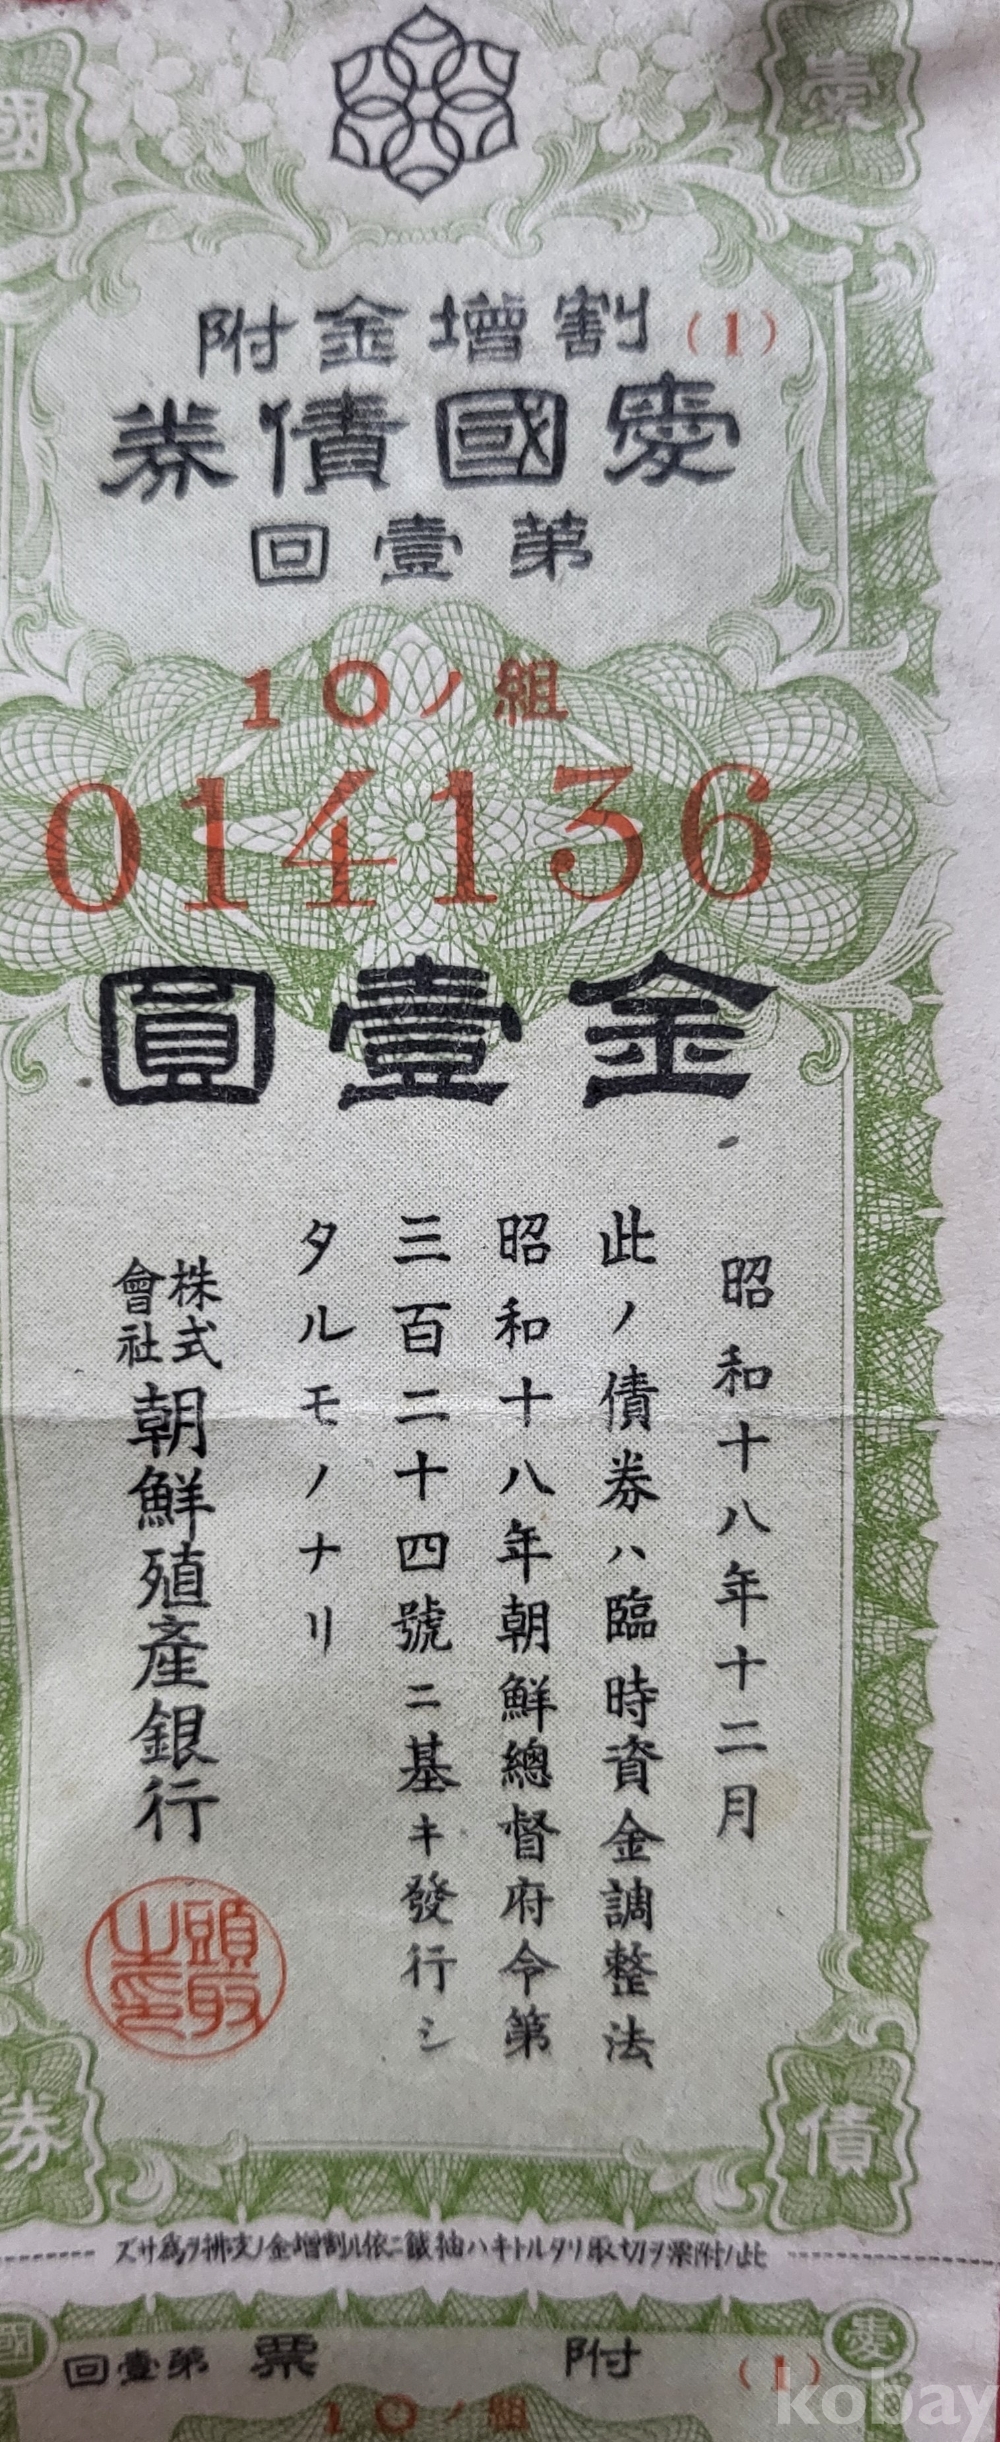 國
愛
割增金附 (1)
愛國債券
第壹回
10ノ組
014136
金壹圓
昭和十八年十二月
此ノ債券ハ臨時資金調整法
昭和十八年朝鮮總督府令第
三百二十四號ニ基キ發行シ
タルモノナリ
株式會社朝鮮殖產銀行
頭取之印
債
券
此ノ附票ヲ切取リタルトキハ抽籤ニ依ル割增金ノ支拂ヲ爲サズ
愛
國
(1) 附票 第壹回
10ノ組
kobay